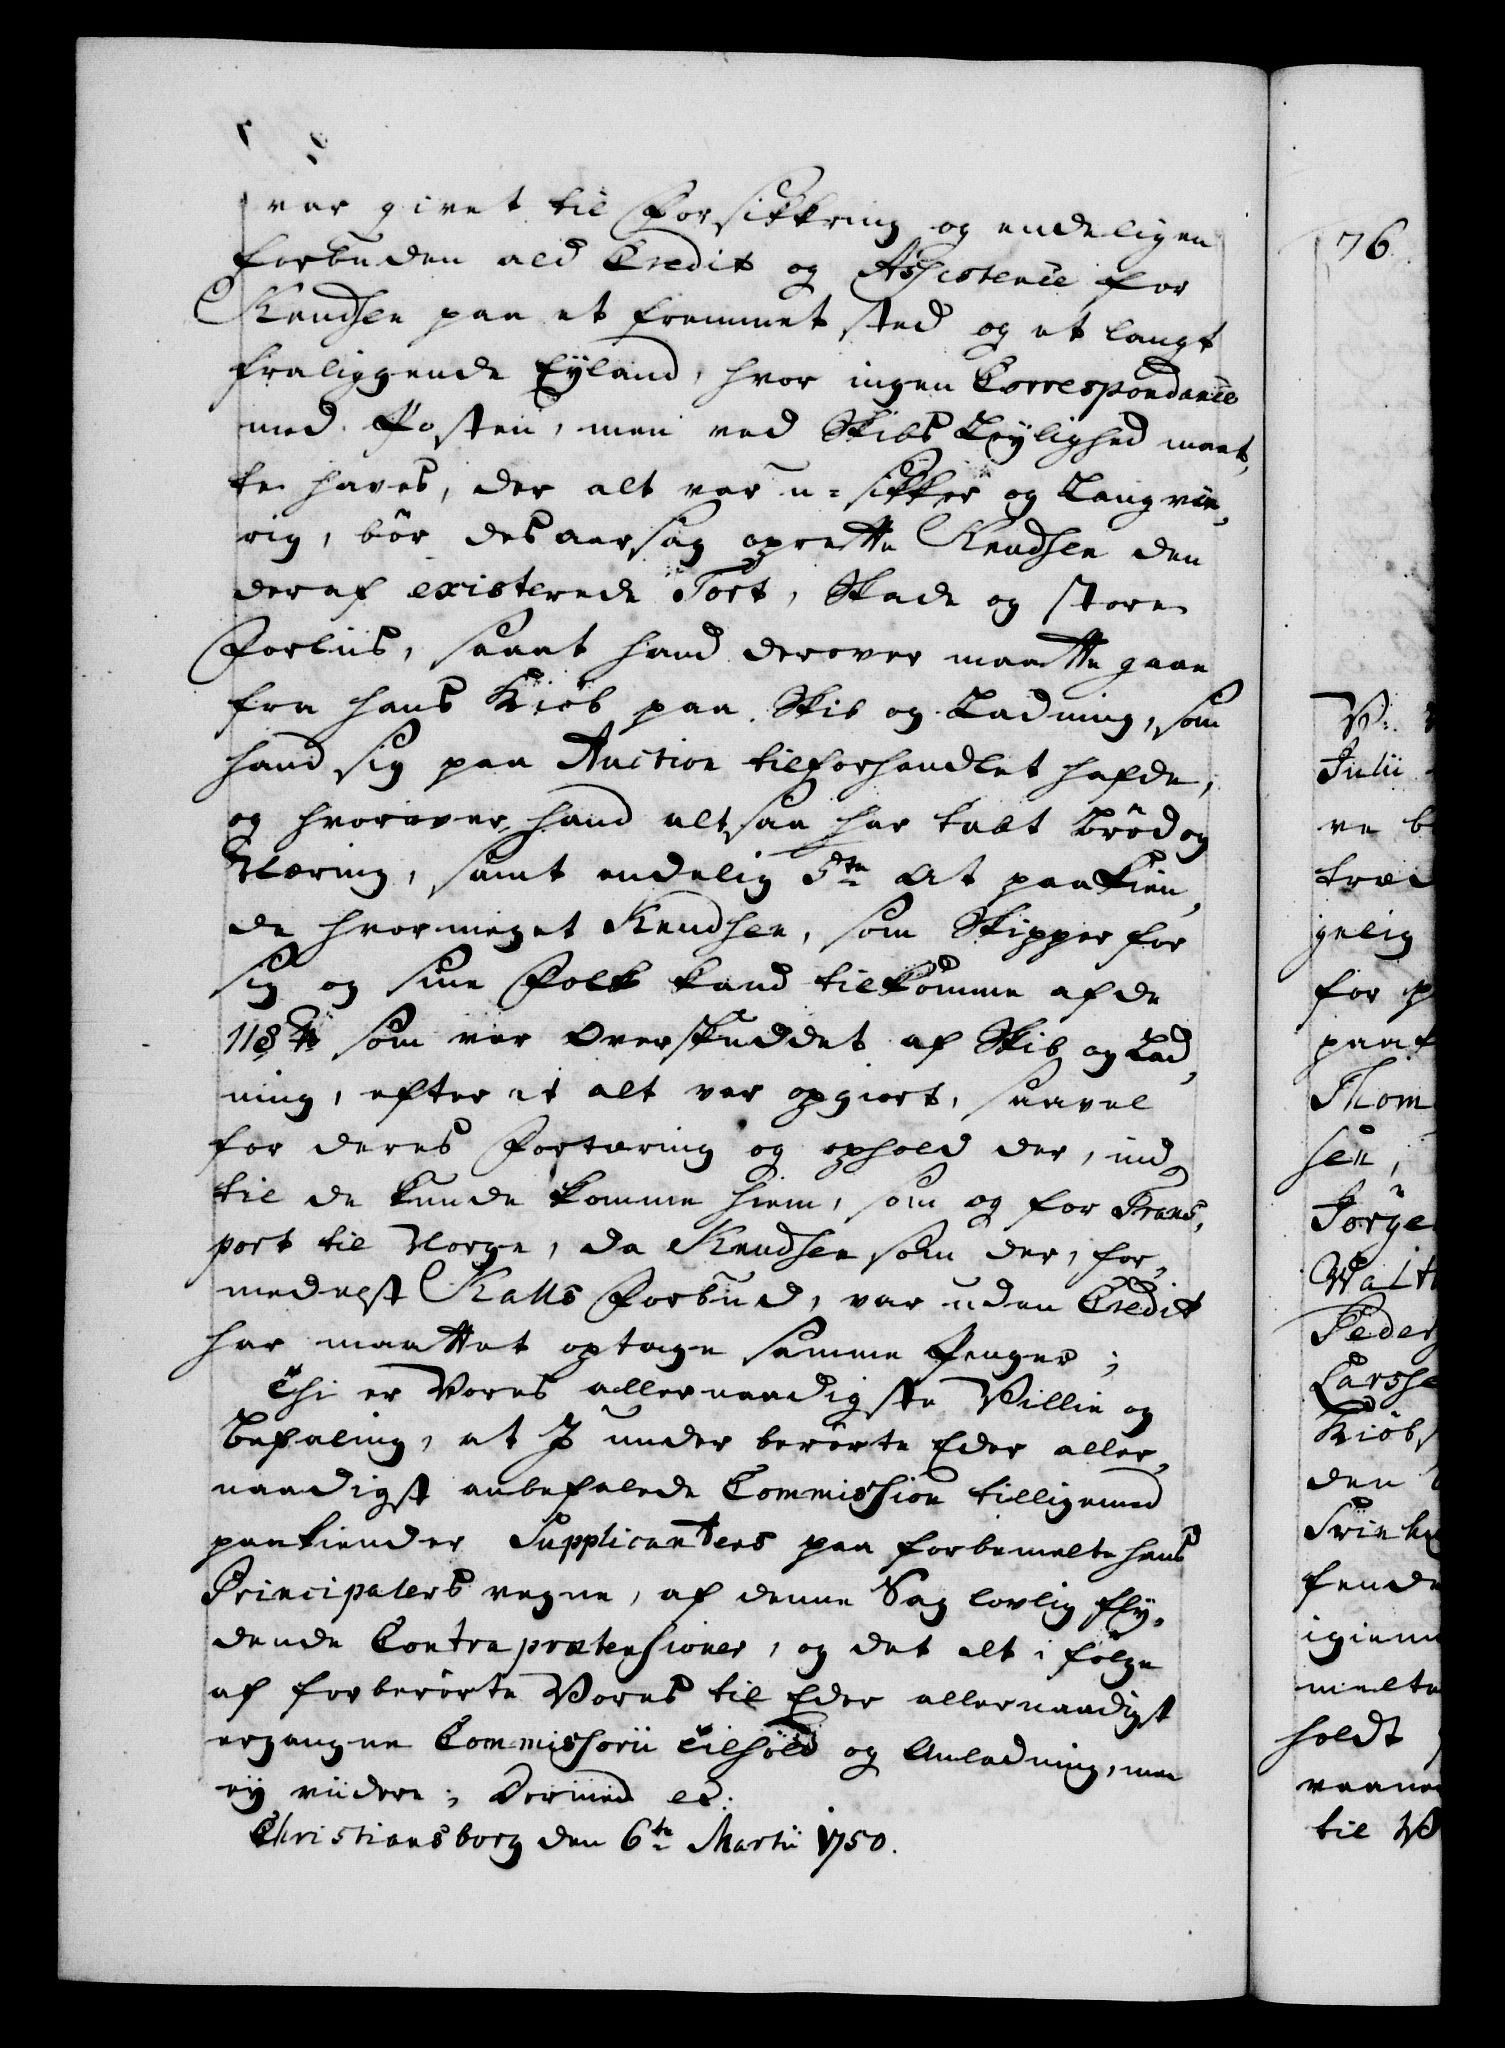 var givet til Forsikkring og endeligen
forbuden ald Credit og Assistence for
Knudsen paa et fremmet sted og et langt
fraliggende Eyland, hvor ingen Correspondance
med Posten, men ved Skibs Leylighed maat,
te haves, der alt var u-sikker og Langvæ,
rig, bør desaarsag oprette Knudsen den
deraf existerede Tort, Skade og store
Forliis, samt hand derover maatte gaae
fra hans Kiøb paa Skib og Ladning, som
hand sig paa Auction tilforhandlet hafde,
og hvorover hand altsaa har tabt Brød og
Næring, samt endelig 5te At paakien,
de hvormeget Knudsen, som Skipper for
sig og sine Folk kand tilkomme af de
118 som var Overskuddet af Skib og Lad,
ning, efter at alt var opgiort, saavel
for deres Fortæring og ophold der, ind,
til de kunde komme hiem, som og for Trans,
port til Norge, da Knudsen som der, for,
medelst Kalls Forbud, var uden Credit
har maattet optage samme Penger;
Thi er Vores allernaadigste Villie og
Befaling, at I under berørte Eder aller,
naadigst anbefalede Commission tilligemed
paakiender Supplicantens paa forbemelte hans
Principalers vegne, af denne Sag lovlig fly,
dende Contraprætensioner, og det alt i følge
af forberørte Vores til Eder allernaadigst
ergangne Commissorii Tilhold og Anledning, men
ey viidere; Dermed etc.
Christiansborg den 6te Martii 1750.
76.
V:
Julii
ve b
træd
gelig
for p
paaf
Thom
sen,
Jørge
Walt
Peder
Larsse
Kiøb
den
fende
igienn
melte
holdt
til V